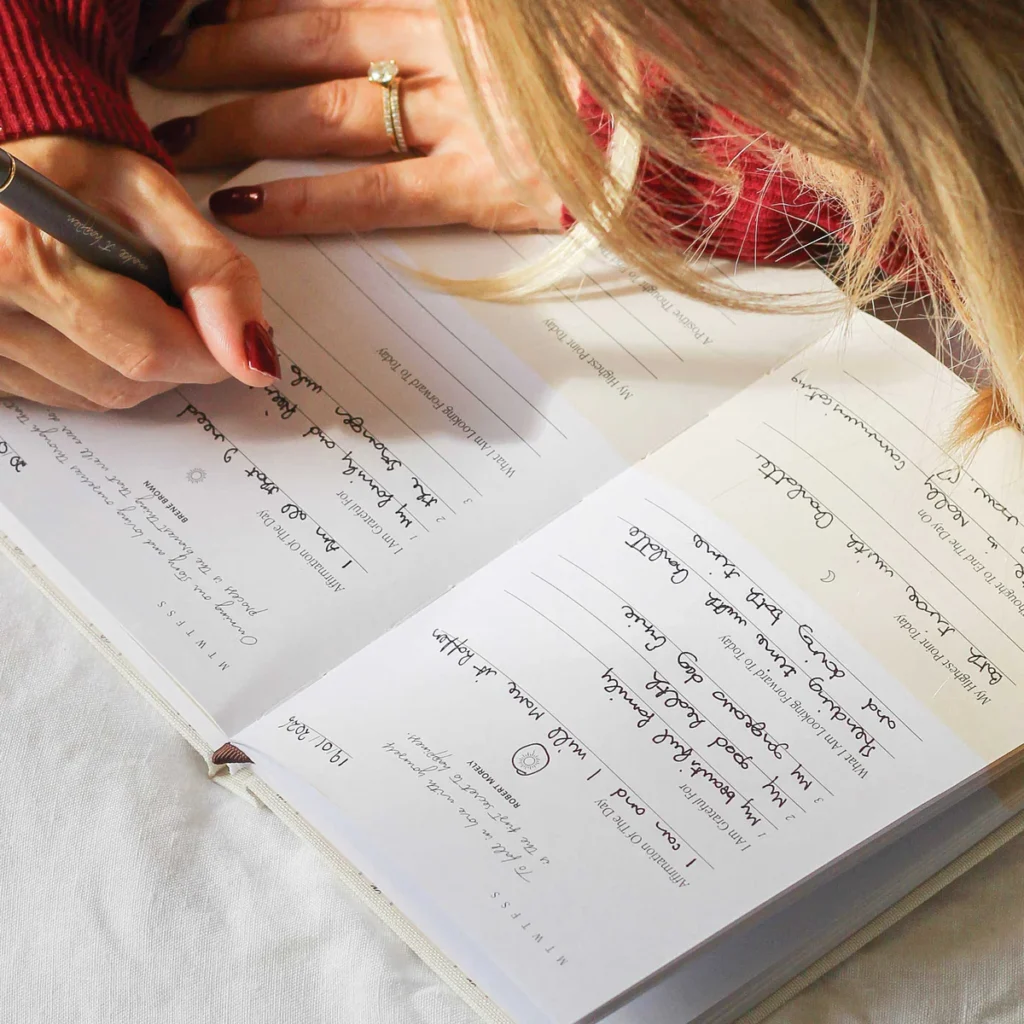 19/01/2024
M T W T F S S
To fall in love with yourself
is the first secret to happiness.
ROBERT MORELY
Affirmation Of The Day
I can and I will Make it happen
I Am Grateful For
1 My beautiful family
2 My good health
3 My gorgeous dog
What I Am Looking Forward To Today
Spending time with Charlotte
and doing bath time
My Highest Point Today
bath time with Charlotte
Thought To End The Day On
is Really
20/0
M T W T F S S
Owning our story and loving ourselves through that
process is the bravest thing that we'll ever do
BRENE BROWN
Affirmation Of The Day
I Am all that I need
I Am Grateful For
1 My family and
2 the strangers who
3
What I Am Looking Forward To Today
My Highest Point Today
A Positive Thought To
make it happen